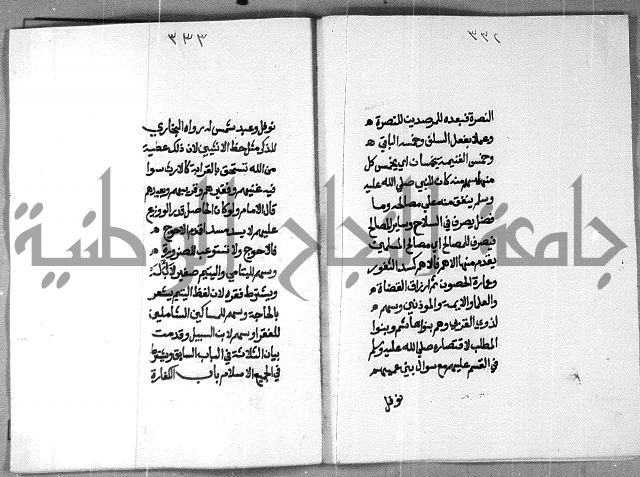 ٣٣٢
النصرة فبعده للمرصدين للنصرة
وعملا بفعل السلف وخمسه الباقي
وخمس الغنيمة يخمسان اي يخمس كل
منهما سهم منه كان للنبي صلي الله عليه
وسلم ينفق منه علي مصالحه وما
فضل يصرف في السلاح وساير المصالح
فيصرف للمصالح اي مصالح المسلمين
يقدم منها الاهم فالاهم كسد الثغور
وعمارة الحصون ثم ارزاق القضاة
والعلما والايمة والموذنين وسهم
لذوي القربي وهم بنو هاشم وبنوا
المطلب لاقتصاره صلي الله عليه وسلم
في القسم عليهم مع سوال بني عميهم
نوفل
٣٣٣
نوفل وعبد شمس له رواه البخاري
للذكر مثل حظ الانثيين لان ذلك عطية
من الله تستحق بالقرابة كالارث سوا
فيه غنيهم وفقيرهم وقريبهم وبعيدهم
قال الامام ولو كان الحاصل قدر لو وزع
عليهم لا يسد مسدا قدم الاحوج
فالاحوج ولا تستوعب للضرورة
وسهم لليتامي واليتيم صغير لا اب له
ويشترط فقره لان لفظ اليتيم يشعر
بالحاجة وسهم للمساكين الشاملين
للفقرا وسهم لابن السبيل وقدمت
بيان الثلاثة في الباب السابق ويشترط
في الجميع الاسلام باب الكفارة
جامعة النجاح الوطنية